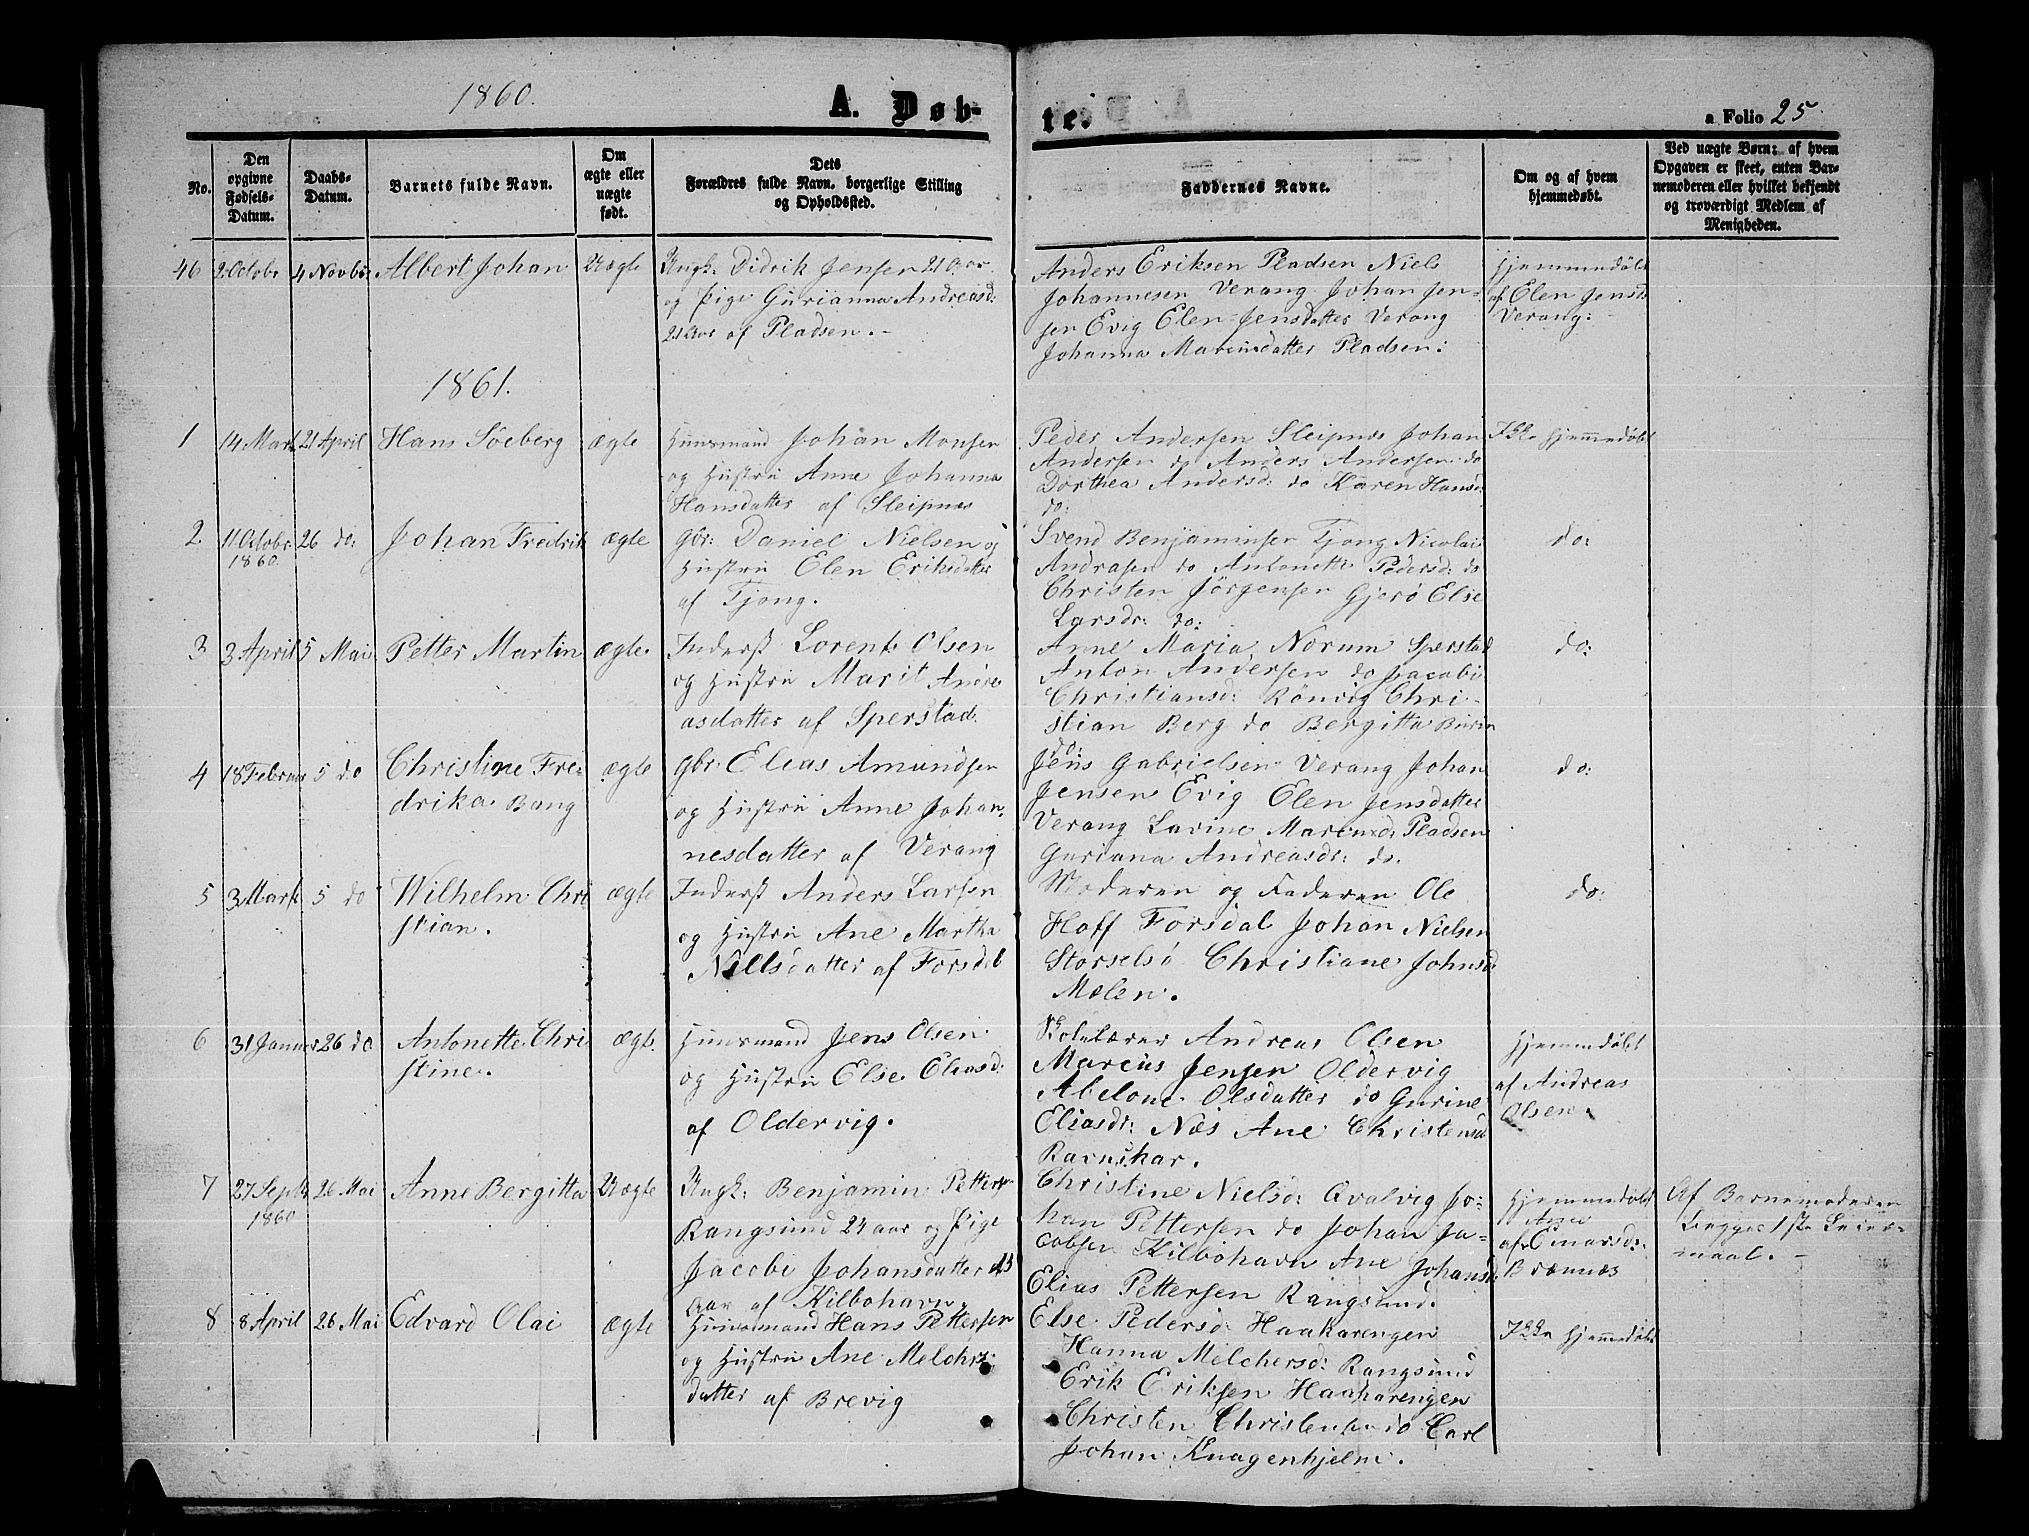 1860.
A. Døb-
te.
a Folio 25.
No.
Den opgivne Fødsels-Datum.
Daabs-Datum.
Barnets fulde Navn.
Om ægte eller uægte født.
Dets Forældres fulde Navn, borgerlige Stilling og Opholdssted.
Faddernes Navne.
Om og af hvem hjemmedøbt.
Ved uægte Børn: af hvem Opgaven er skeet, enten Barnemoderen eller hvilket bekjendt og troværdigt Medlem af Menigheden.
46 2 Octobr 4 Novbr: Albert Johan Uægte
Ungk: Didrik Jensen 21 Aar
og Pige Gurianna Andreasd:
21 Aar af Pladsen.-
Anders Eriksen Pladsen Niels
Johannesen Verang Johan Jen-
sen Evig Elen Jensdatter Verang
Johanna Marcusdatter Pladsen:
Hjemmedöbt
af Elen Jensd:
Verang:
1861.
1 14 Mart 21 April Hans Söeberg ægte
Huusmand Johan Monsen
og Hustru Anne Johanna
Hansdatter af Sleipnæs
Peder Andersen Sleipnæs Johan
Andersen do Anders Andersen do
Dorthea Andersd: do Karen Hansd:
do:
Ikke hjemmedöbt
2. 11 Octobr. 1860. 26 do: Johan Fredrik ægte
Gbr: Daniel Nielsen og
Hustru Elen Eriksdatter
af Tjong.
Svend Benjaminsen Tjong Nicolai
Andrasen do Antonette Pedersd: do
Christen Jörgensen Gjerö Else
Larsdr: do:
do:
3 3 April 5 Mai Petter Martin ægte.
Inderst Lorents Olsen
og Hustru Marit Andre
asdatter af Sperstad.
Anne Maria Norum Sperstad
Anton Andersen do Jacobi
Christiansd: Rönvig Chri-
stian Berg do Bergitta
do:
do:
4 18 Februar 5 do Christine Fre-
drika Bang ægte
Gbr: Elias Amundsen
og Hustru Anne Johan-
nesdatter af Verang
Jens Gabrielsen Verang Johan
Jensen Evig Elen Jensdatter
Verang Lavine Marcusd: Pladsen
Guriana Andreasdr: do.
do:
5 3 Marts 5 do Wilhelm Chri
stian. ægte
Inderst Anders Larsen
og Hustru Ane Martha
Nillsdatter af Forsdal
Moderen og Faderen Ole
Hoff Forsdal Johan Nielsen
Storselsö Christiane Johnsd
Mælen.
do:
6 31 Januar 26 do Antonette Chri
stine. ægte.
Huusmand Jens Olsen
og Hustru Else Eliasd:
af Oldervig.
Skolelærer Andreas Olsen
Marcus Jensen Oldervig
Abelone Olsdatter do Gurine
Eliasdr: Næs Ane Christensd
Ravnskar.
Hjemmedöbt
af Andreas
Olsen.
7 27 Septbr 1860 26 Mai Anne Bergitta Uægte
Ungk: Benjamin Petters
Rangsund 24 aar og Pige
Jacobi Johansdatter 23
Aar af Kilbohavn.
Christine Nielsd: Qvalvig Jo-
han Pettersen do Johan Ja-
cobsen Kilbohavn Ane Johansd
Elias Pettersen Rangsund.
Hjemmedöbt
af Anne
Omarsdr:
Trænnæs
Af Barnemoderen
begges 1ste Leier-
maal. -
8 8 April 26 Mai Edvard Olai ægte
Huusmand Hans Pettersen
og Hustru Ane Melchers
datter af Brevig
Else Pedersd Haakarengen
Hanna Melchersd: Rangsund
Erik Eriksen Haakarengen
Christen Christensen do Carl
Johan Knagenhjelm.
Ikke hjemmedöbt